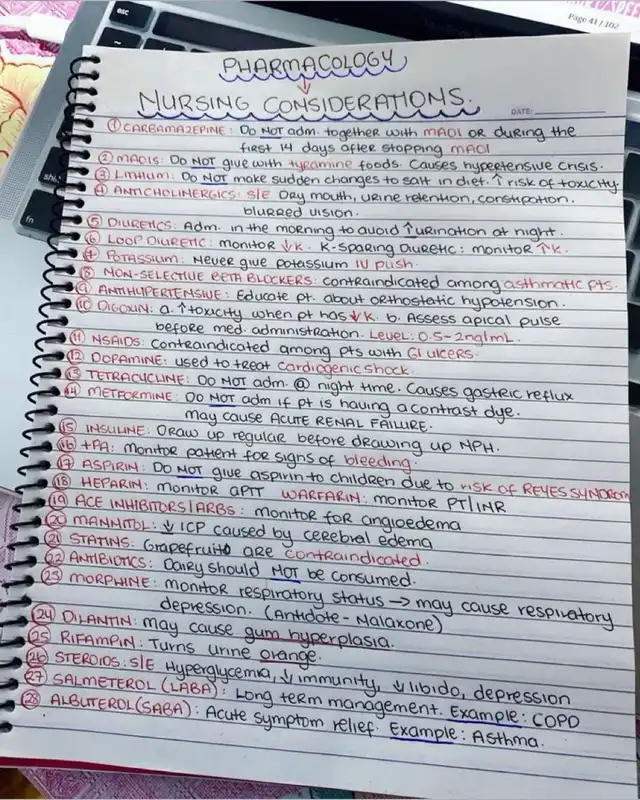 esc
Page 41 / 102
PHARMACOLOGY
↓
NURSING CONSIDERATIONS.
DATE:
① CARBAMAZEPINE: Do NOT adm. together with MAOI OR during the
first 14 days after stopping MAOI
② MAOIS: Do NOT give with tyramine foods. Causes hypertensive crisis.
③ LITHIUM: Do NOT make sudden changes to salt in diet. ↑ risk of toxicity.
④ ANTICHOLINERGICS: S/E Dry mouth, urine retention, constipation.
blurred vision.
⑤ DIURETICS: Adm. in the morning to avoid ↑urination at night.
⑥ LOOP DIURETIC: monitor ↓K. K-Sparing Diuretic: monitor ↑K.
⑦ POTASSIUM: Never give potassium IV push.
⑧ NON-SELECTIVE BETA BLOCKERS: contraindicated among asthmatic pts.
⑨ ANTIHYPERTENSIVE: Educate pt. about orthostatic hypotension.
⑩ DIGOXIN: a. ↑toxicity when pt has ↓K. b. Assess apical pulse
before med. administration. Level: 0.5-2ng/mL.
⑪ NSAIDS: contraindicated among pts with GI ulcers.
⑫ DOPAMINE: used to treat cardiogenic shock.
⑬ TETRACYCLINE: Do NOT adm. @ night time. Causes gastric reflux
⑭ METFORMINE: Do NOT adm if pt is having a contrast dye.
may cause ACUTE RENAL FAILURE.
⑮ INSULINE: Draw up regular before drawing up NPH.
⑯ tPA: monitor patient for signs of bleeding.
⑰ ASPIRIN: Do NOT give aspirin to children due to risk of REYES SYNDROM
⑱ HEPARIN: monitor aPTT WARFARIN: monitor PT/INR
⑲ ACE INHIBITORS/ARBS: monitor for angioedema
⑳ MANNITOL: ↓ ICP caused by cerebral edema
㉑ STATINS: Grapefruit are contraindicated.
㉒ ANTIBIOTICS: Dairy should NOT be consumed.
㉓ MORPHINE: monitor respiratory status → may cause respiratory
depression. (Antidote - Nalaxone)
㉔ DILANTIN: may cause gum hyperplasia.
㉕ RIFAMPIN: Turns urine orange.
㉖ STEROIDS: S/E Hyperglycemia, ↓ immunity, ↓ libido, depression
㉗ SALMETEROL (LABA): Long term management. Example: COPD
㉘ ALBUTEROL (SABA): Acute symptom relief. Example: Asthma.
fn